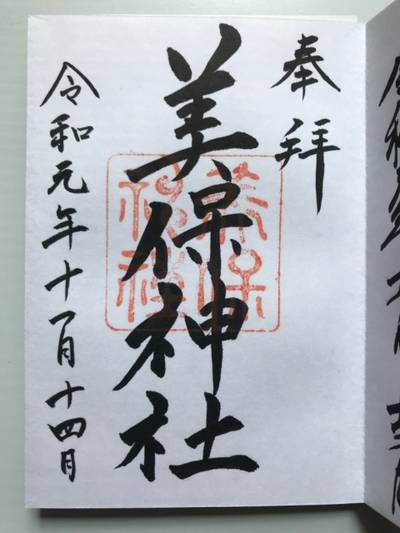 奉拝
美保神社
令和元年十一月十四日